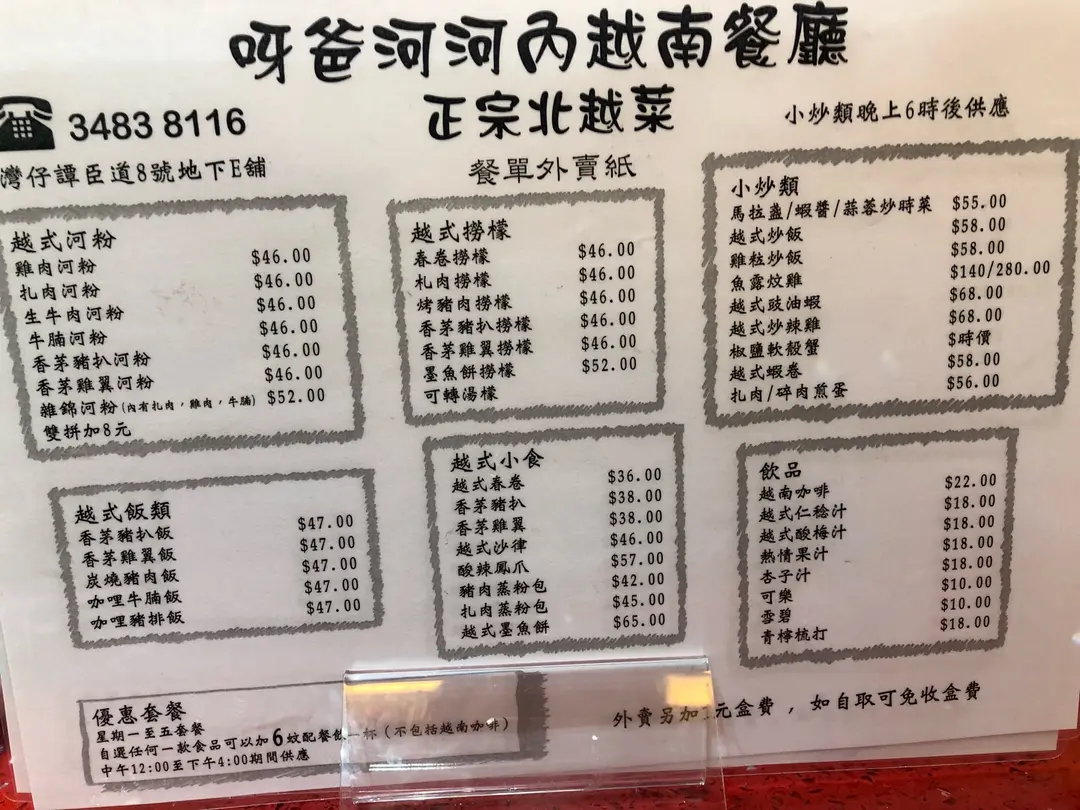 呀爸河河內越南餐廳
正宗北越菜
3483 8116
灣仔譚臣道8號地下E舖
餐單外賣紙
小炒類晚上6時後供應
越式河粉
雞肉河粉 $46.00
扎肉河粉 $46.00
生牛肉河粉 $46.00
牛腩河粉 $46.00
香茅豬扒河粉 $46.00
香茅雞翼河粉 $46.00
雜錦河粉(內有扎肉，雞肉，牛腩) $52.00
雙拼加8元
越式撈檬
春卷撈檬 $46.00
札肉撈檬 $46.00
烤豬肉撈檬 $46.00
香茅豬扒撈檬 $46.00
香茅雞翼撈檬 $46.00
墨魚餅撈檬 $52.00
可轉湯檬
小炒類
馬拉盞/蝦醬/蒜蓉炒時菜 $55.00
越式炒飯 $58.00
雞粒炒飯 $58.00
魚露炆雞 $140/280.00
越式豉油蝦 $68.00
越式炒辣雞 $68.00
椒鹽軟殼蟹 $時價
越式蝦卷 $58.00
扎肉/碎肉煎蛋 $56.00
越式飯類
香茅豬扒飯 $47.00
香茅雞翼飯 $47.00
炭燒豬肉飯 $47.00
咖哩牛腩飯 $47.00
咖哩豬排飯 $47.00
越式小食
越式春卷 $36.00
香茅豬扒 $38.00
香茅雞翼 $38.00
越式沙律 $46.00
酸辣鳳爪 $57.00
豬肉蒸粉包 $42.00
扎肉蒸粉包 $45.00
越式墨魚餅 $65.00
飲品
越南咖啡 $22.00
越式仁稔汁 $18.00
越式酸梅汁 $18.00
熱情果汁 $18.00
杏子汁 $18.00
可樂 $10.00
雪碧 $10.00
青檸梳打 $18.00
優惠套餐
星期一至五套餐
自選任何一款食品可以加6蚊配餐飲一杯(不包括越南咖啡)
中午12:00至下午4:00期間供應
外賣另加元盒費，如自取可免收盒費